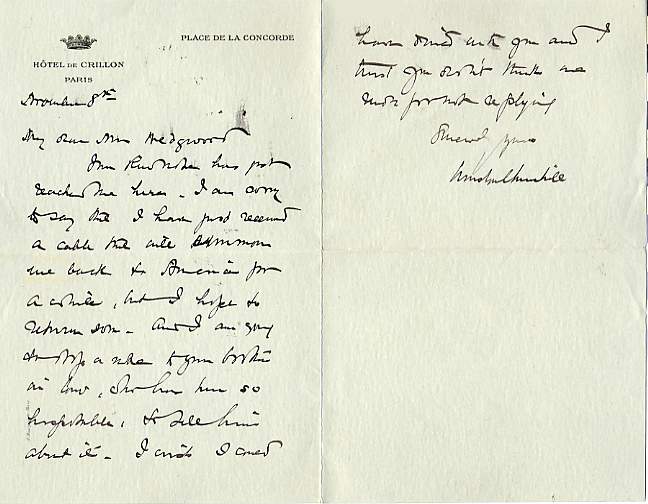 PLACE DE LA CONCORDE
HÔTEL DE CRILLON
PARIS
November 8th
My dear Mrs Wedgwood
Your kind note has just
reached me here. I am sorry
to say that I have just received
a cable that will summon
me back to America for
a while, but I hope to
return soon. And I am going
to drop a note to your brother
in law, who has been so
hospitable, to tell him
about it. I wish I could
have dined with you and I
trust you didn't think me
rude for not replying
Sincerely yours